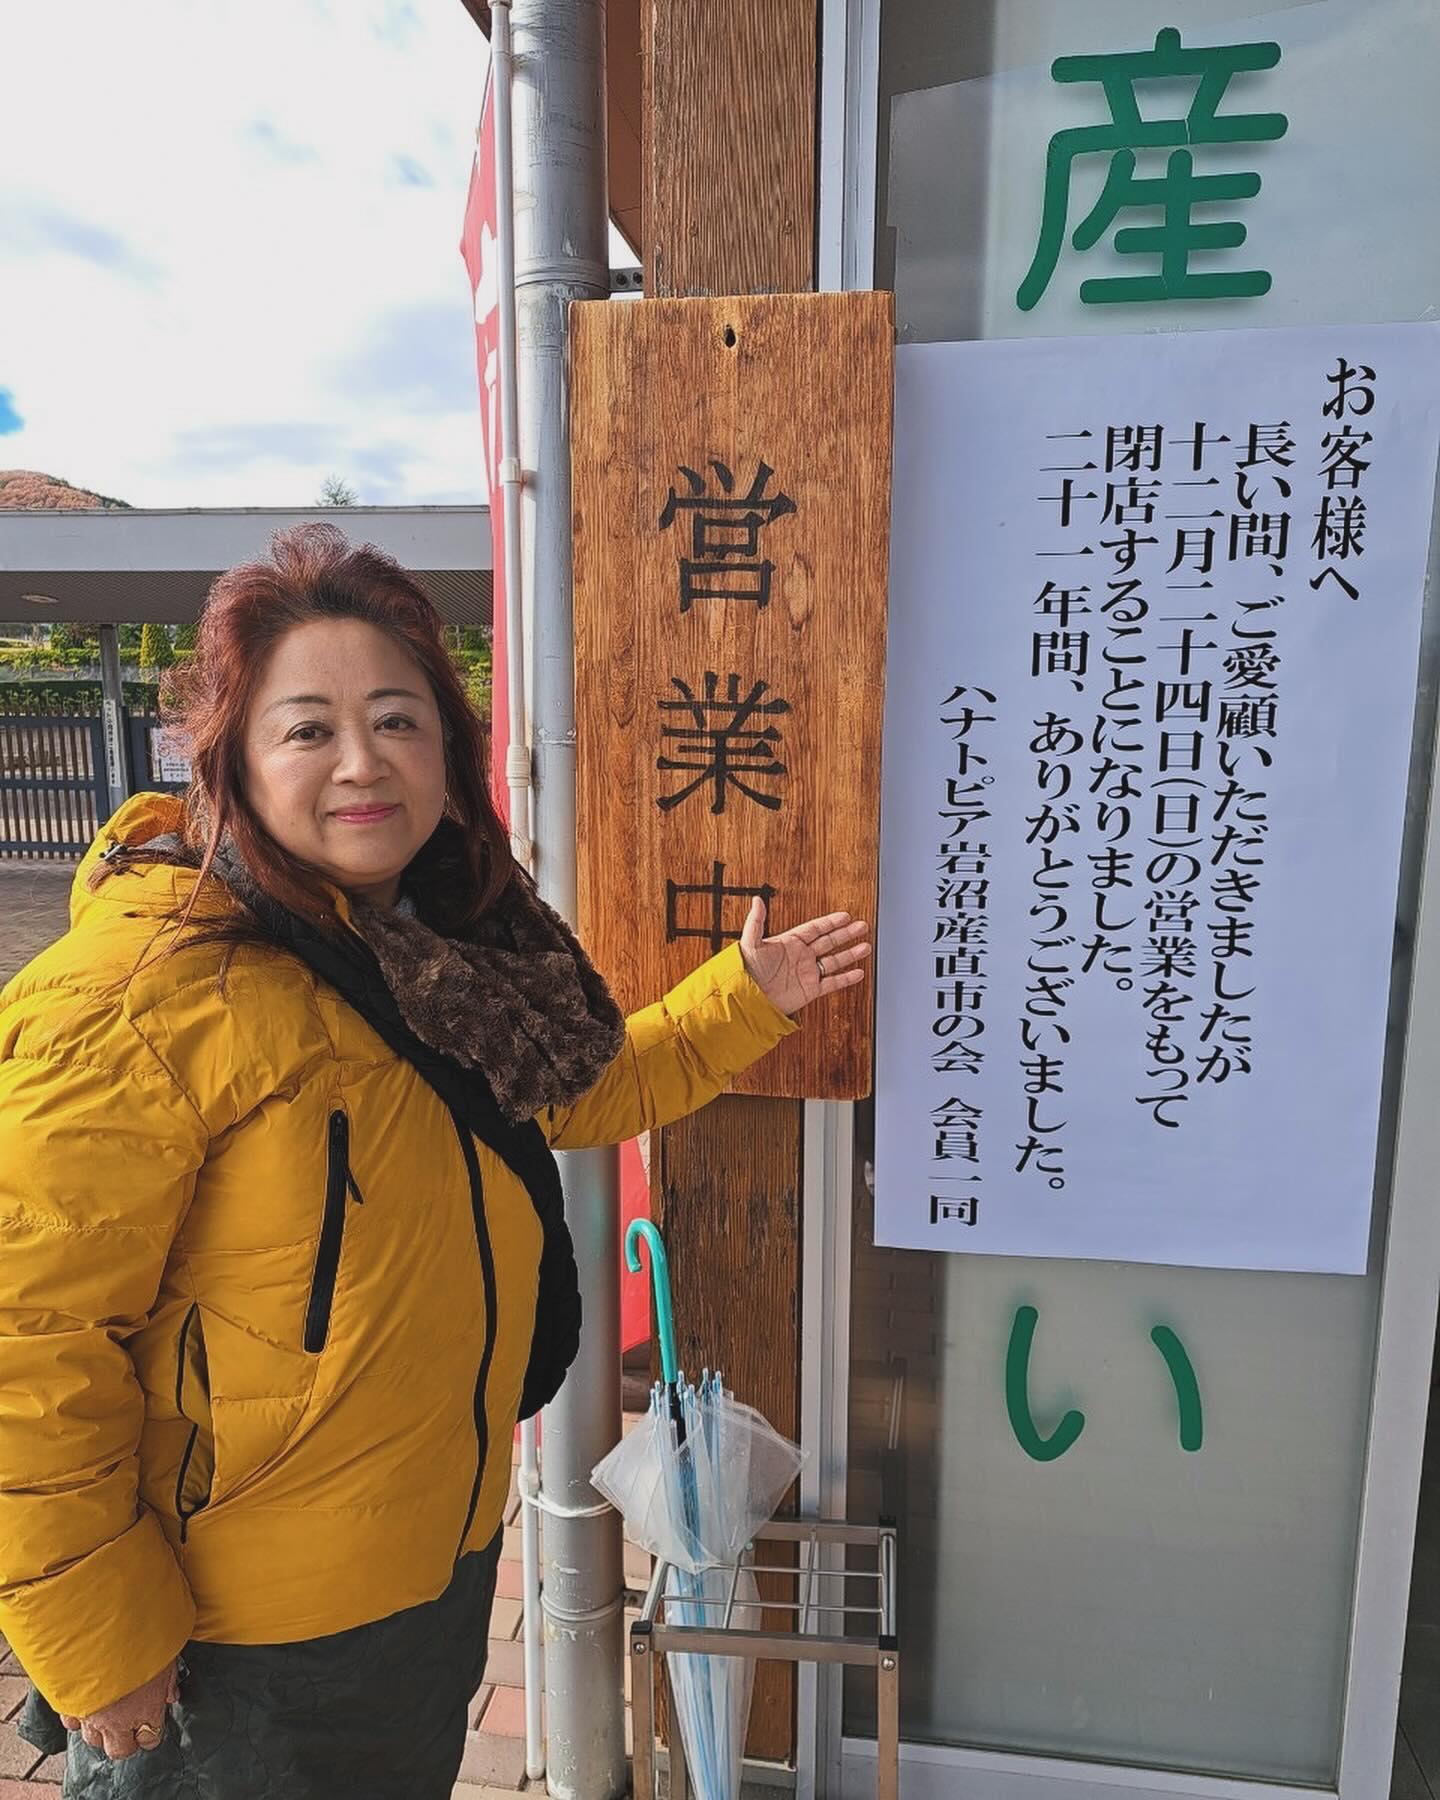 産
い
営業中
お客様へ
長い間、ご愛顧いただきましたが
十二月二十四日(日)の営業をもって
閉店することになりました。
二十一年間、ありがとうございました。
ハナトピア岩沼産直市の会 会員一同